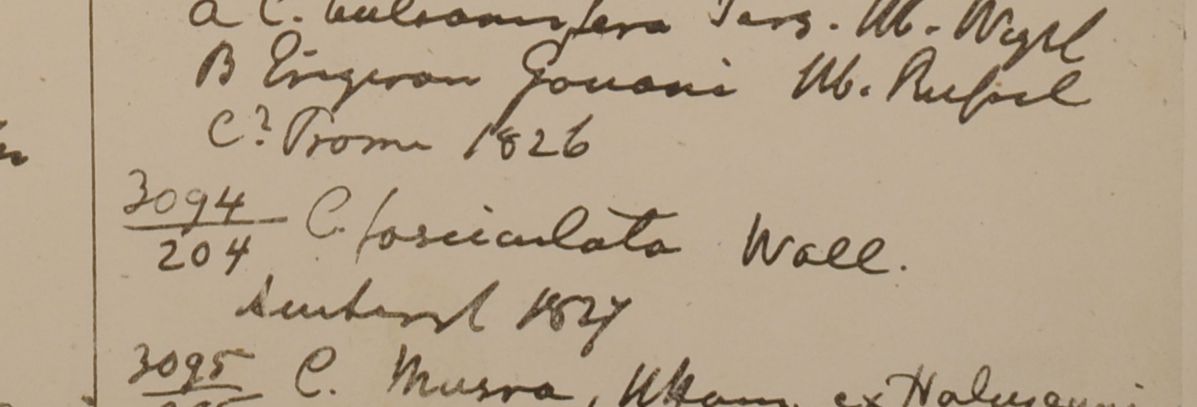 a C. balsamifera Pers. Hb. Wight
B Erigeron Gouani Hb. Russel
C? Prome 1826
3094
204 C. fasciculata Wall.
Amherst 1827
3095 C. Hb. Ham. ex